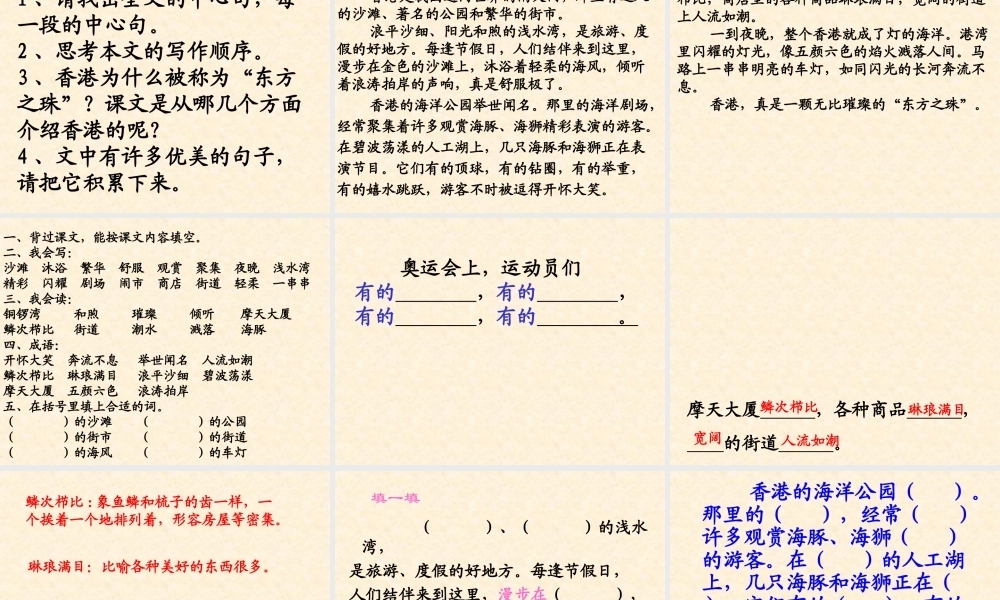 1、请找出全文的中心句，每
一段的中心句。
2、思考本文的写作顺序。
3、香港为什么被称为“东方
之珠”？课文是从哪几个方面
介绍香港的呢？
4、文中有许多优美的句子，
请把它积累下来。
的沙滩、著名的公园和繁华的街市。
浪平沙细、阳光和煦的浅水湾，是旅游、度
假的好地方。每逢节假日，人们结伴来到这里，
漫步在金色的沙滩上，沐浴着轻柔的海风，倾听
着浪涛拍岸的声响，真是舒服极了。
香港的海洋公园举世闻名。那里的海洋剧场，
经常聚集着许多观赏海豚、海狮精彩表演的游客。
在碧波荡漾的人工湖上，几只海豚和海狮正在表
演节目。它们有的顶球，有的钻圈，有的举重，
有的嬉水跳跃，游客不时被逗得开怀大笑。
栉比，商店里的各种商品琳琅满目，宽阔的街道
上人流如潮。
一到夜晚，整个香港就成了灯的海洋。港湾
里闪耀的灯光，像五颜六色的焰火溅落人间。马
路上一串串明亮的车灯，如同闪光的长河奔流不
息。
香港，真是一颗无比璀璨的“东方之珠”。
一、背过课文，能按课文内容填空。
二、我会写：
沙滩 沐浴 繁华 舒服 观赏 聚集 夜晚 浅水湾
精彩 闪耀 剧场 闹市 商店 街道 轻柔 一串串
三、我会读：
铜锣湾 和煦 璀璨 倾听 摩天大厦
鳞次栉比 街道 潮水 溅落 海豚
四、成语：
开怀大笑 奔流不息 举世闻名 人流如潮
鳞次栉比 琳琅满目 浪平沙细 碧波荡漾
摩天大厦 五颜六色 浪涛拍岸
五、在括号里填上合适的词。
（ ）的沙滩 （ ）的公园
（ ）的街市 （ ）的街道
（ ）的海风 （ ）的车灯
奥运会上，运动员们
有的________，有的________，
有的________，有的________。
摩天大厦鳞次栉比，各种商品琳琅满目，
宽阔的街道人流如潮。
鳞次栉比：象鱼鳞和梳子的齿一样，一
个挨着一个地排列着，形容房屋等密集。
琳琅满目：比喻各种美好的东西很多。
填一填
（ ）、（ ）的浅水
湾，
是旅游、度假的好地方。每逢节假日，
人们结伴来到这里，漫步在（ ），
香港的海洋公园（ ）。
那里的（ ），经常（ ）
许多观赏海豚、海狮（ ）
的游客。在（ ）的人工湖
上，几只海豚和海狮正在（